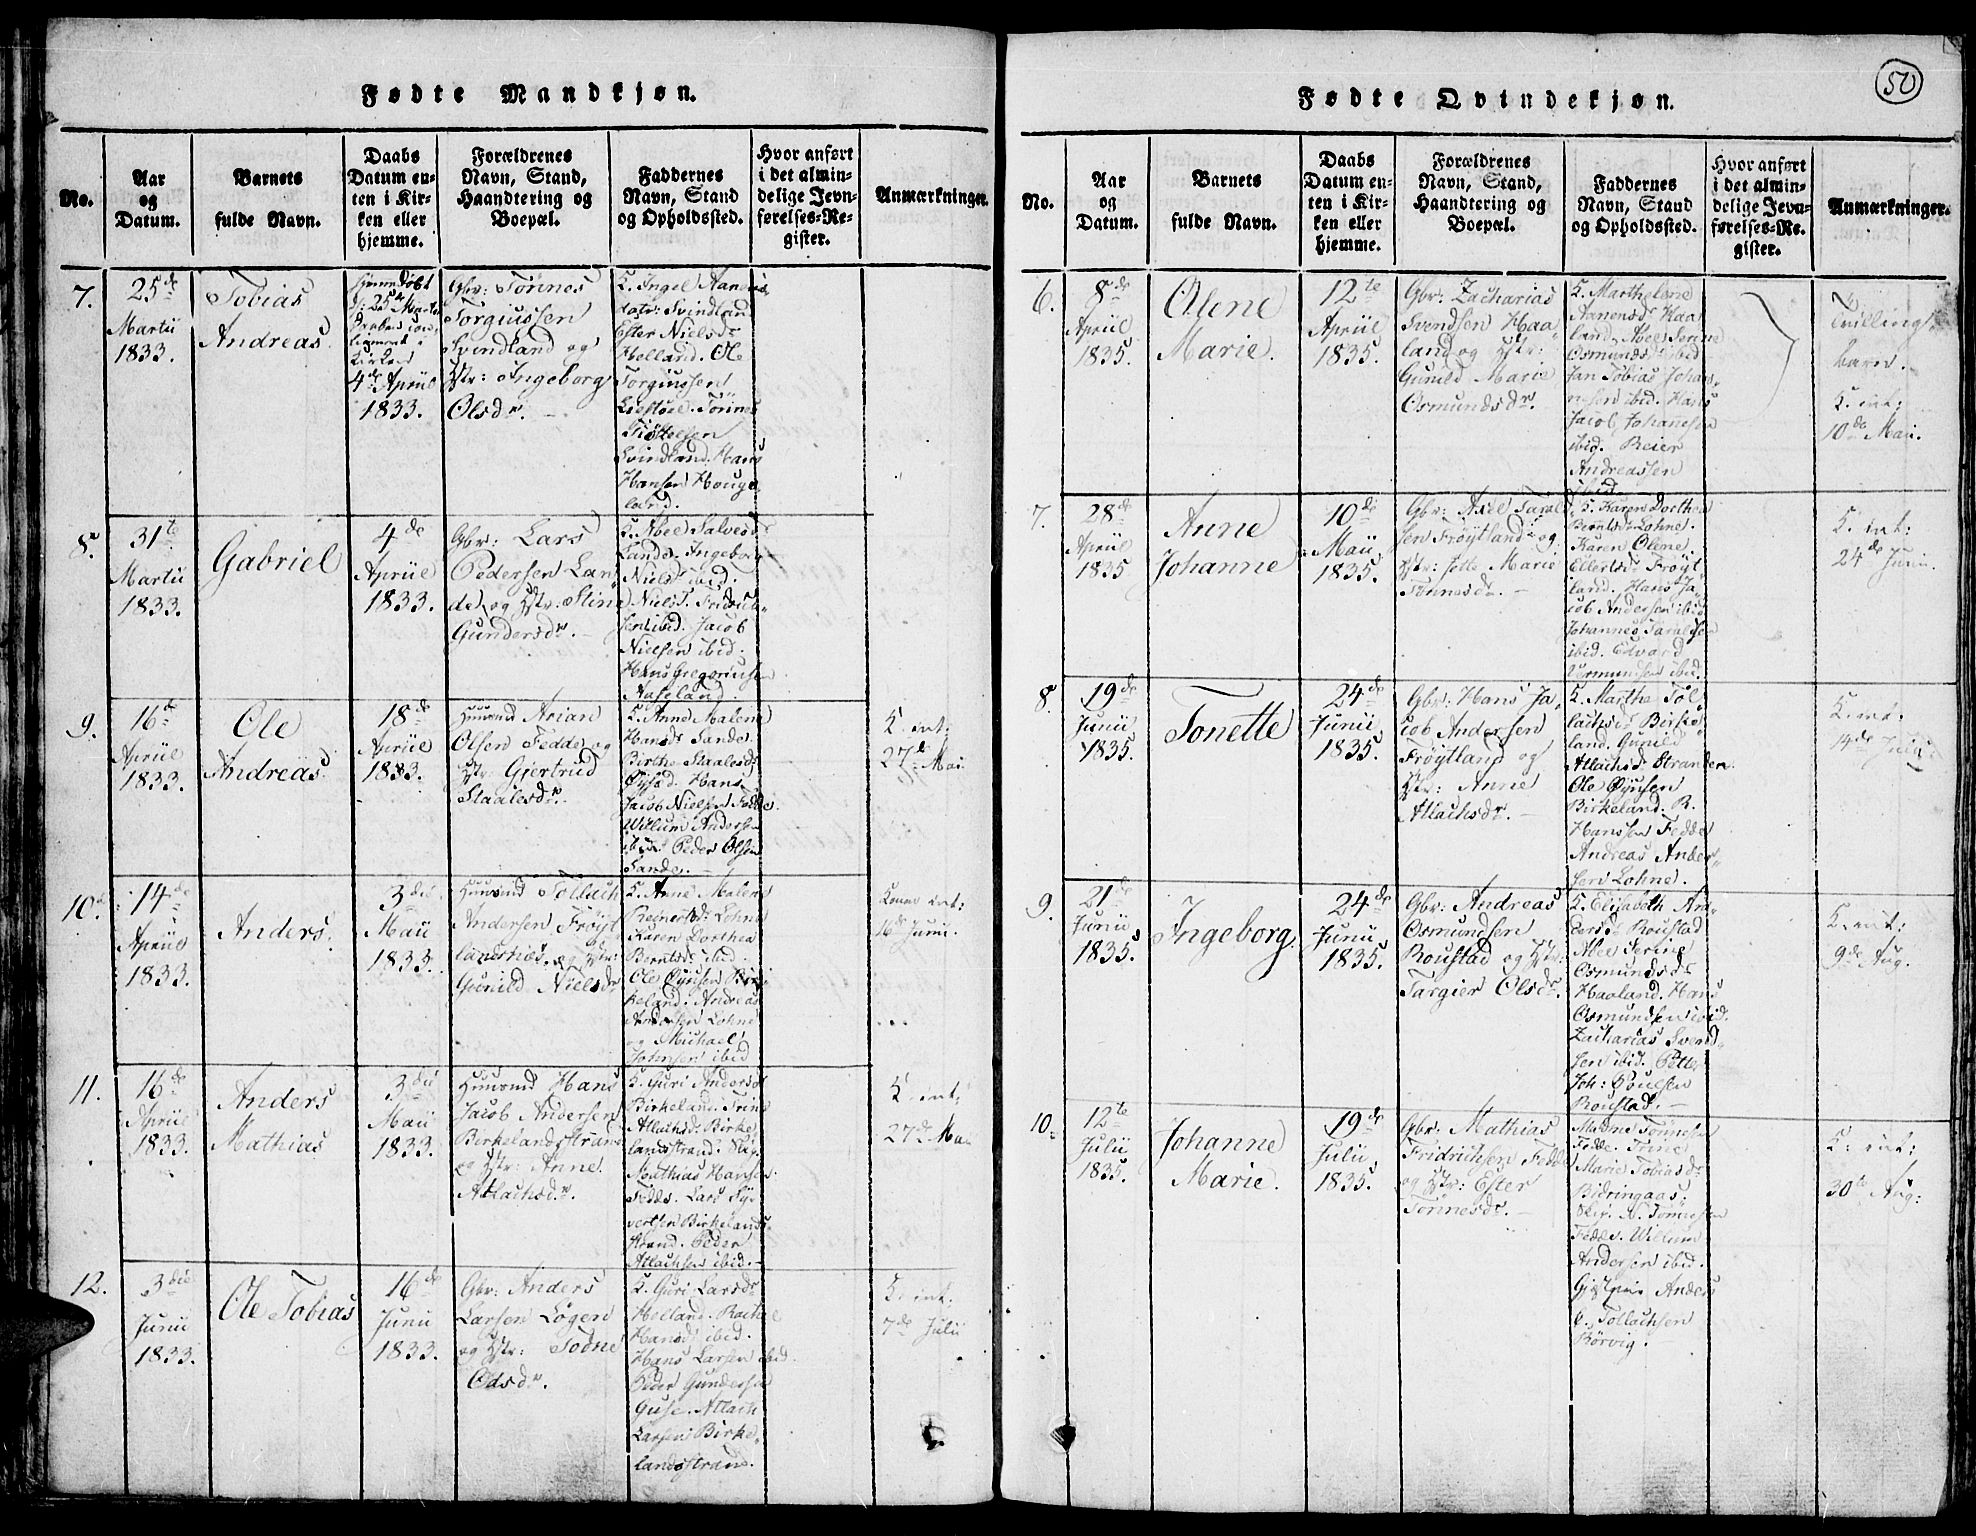 Fødte Mandkjøn.
No.
Aar
og
Datum.
Barnets
fulde Navn.
Daabs
Datum en-
ten i Kir-
ken eller
hjemme.
Forældrenes
Navn, Stand,
Haandtering og
Boepæl.
Faddernes
Navn, Stand
og Opholdssted.
Hvor anført
i det almin-
delige Jevn-
førelses-Re-
gister.
Anmærkninger.
7.
25de
Martii
1833.
Tobias
Andreas.
Hjemmedøbt
d: 25de Martii
Kirken
4de Apriil
1833.
Gbr: Tönnes
Torgiussen
Svindland og
Hstr: Ingeborg
Olsdr. -
K. Ingel Aanens
datr: Svindland
Ester Nielsdr
Holland. Ole
Torgiussen
Liestöel. Tönnes
Svindland. Hans
Hansen Houge
land.
8.
31te
Martii
1833.
Gabriel
4de
Apriil
1833.
Gbr: Lars
Pedersen Lan
de, og Hstr: Stine
Gundersdr. -
K. Abel Salvesdr
Lande. Ingeborg
Nielsdr ibid.
Niels Fridrich-
sen ibid. Jacob
Nielsen ibid.
Hans Gregoriusen
Aaseland.
9.
16de
Apriil
1833.
Ole
Andreas.
18de
Apriil
1833.
Huusmd Arian
Olsen Fedde og
Hstr: Gjertrud
Staalesdr. -
K. Anne Malene
Hansdr Sande.
Birthe Staalesdr
Öysæd. Hans
Jacob Nielsen Fedde.
Willum Andersen
ibid. Peder Olsen
Sande. -
K. int:
27de Mai
10.
14de
Apriil
1833.
Anders.
3die
Maii
1833.
Huusmd Tollach
Andersen Fröyt
landsnæs, og Hstr:
Gunild Nielsdr
K. Anne Malene
Reinertsdr Lohne
Karen Dorthea
Berntsdr ibid.
Ole Öynsen Bir
keland. Andreas
Andersen Lohne
og Michael
Johnsen ibid
Kone int:
16de Junii
11.
16de
Apriil
1833.
Anders
Mathias
3die
Maii
1833.
Huusmd Hans
Jacob Andersen
Birkelandsstrand
og Hstr: Anne
Atlachsdr.
K. Guri Andersdr
Birkeland. Trine
Atlachsdr Birke
landsstrand.
Mathias Hansen
Fedde. Lars Sy
vertsen Birkelands
strand. Peder
Atlachsen ibid. -
K. int:
27de Mai
12.
3die
Junii
1833.
Ole Tobias
16de
Junii
1833.
Gbr: Anders
Larsen Lögen
og Hstr: Todne
Odsdr.
K. Guri Larsdr
Holland. Rachel
Hansdr ibid.
Hans Larsen ibid.
Peder Gundersen
Guse. Atlach
Larsen Birke-
landsstrand.
K. int:
7de Julii
50
Fødte Qvindekjøn.
No.
Aar
og
Datum.
Barnets
fulde Navn.
Daabs
Datum en-
ten i Kir-
ken eller
hjemme.
Forældrenes
Navn, Stand,
Haandtering og
Boepæl.
Faddernes
Navn, Stand
og Opholdssted.
Hvor anført
i det almin-
delige Jevn-
førelses-Re-
gister.
Anmærkninger.
6.
8de
Apriil
1835.
Olene
Marie.
12te
Apriil
1835.
Gbr: Zacharias
Svendsen Haa
land og Hstr:
Gunild Marie
Osmundsdr. -
K. Marthelene
Aanensdr Haa
land. Abel Serine
Osmundsdr ibid
Jan Tobias Johan-
nesen ibid. Hans
Jacob Johanesen
ibid. Reier
Andreassen
ibid.
Tvillinge
barn.
K. int:
10de Mai.
7.
28de
Apriil
1835
Anne
Johanne
10de
Maii
1835.
Gbr: Axel Taral
sen Fröytland og
Hstr: Jette Marie
Tönnesdr. -
K. Karen Dorthea
Berntsdr Lohne.
Karen Olene
Ellertsdr Fröyt
land. Hans Ja-
cob Andersen ibid
Johannes Taralsen
ibid. Edvard
ibid.
K. int:
24de Junii.
8.
19de
Junii
1835.
Tonette
24de
Junii
1835.
Gbr: Hans Ja-
cob Andersen
Fröytland og
Hstr: Anne
Atlachsdr. -
K. Marthe Tol-
lachsdr Birke-
land. Gunild
Atlachsdr Stranden
Ole Öynsen
Birkeland. R.
Hanssen Fedde
Andreas Ander-
sen Lohne.
K. int:
14de Julii
9.
21de
Junii
1835.
Ingeborg.
24de
Junii
1835.
Gbr: Andreas
Osmundsen
Roustad og Hstr:
Targier Olsdr.
K. Elisabeth An-
dersdr Roustad
Abel Serine
Osmundsdr
Haaland. Hans
Osmundsen ibid.
Zacharias Svend-
sen ibid. Petter
Joh: Poulsen
Roustad. -
K. int:
9de Aug.
10.
12te
Julii
1835.
Johanne
Marie.
19de
Julii
1835.
Gbr. Mathias
Fridrichsen Fedde
og Hstr: Ester
Tönnesdr. -
Madme Tönnesen
Fedde. Trine
Marie Tobiasdr
Bidringaas.
Skip. N. Tönnesen
Fedde. Willum
Andersen ibid.
Gjestgiver Anders
C. Tollachsen
Rörvig.
K. int:
30te Aug: